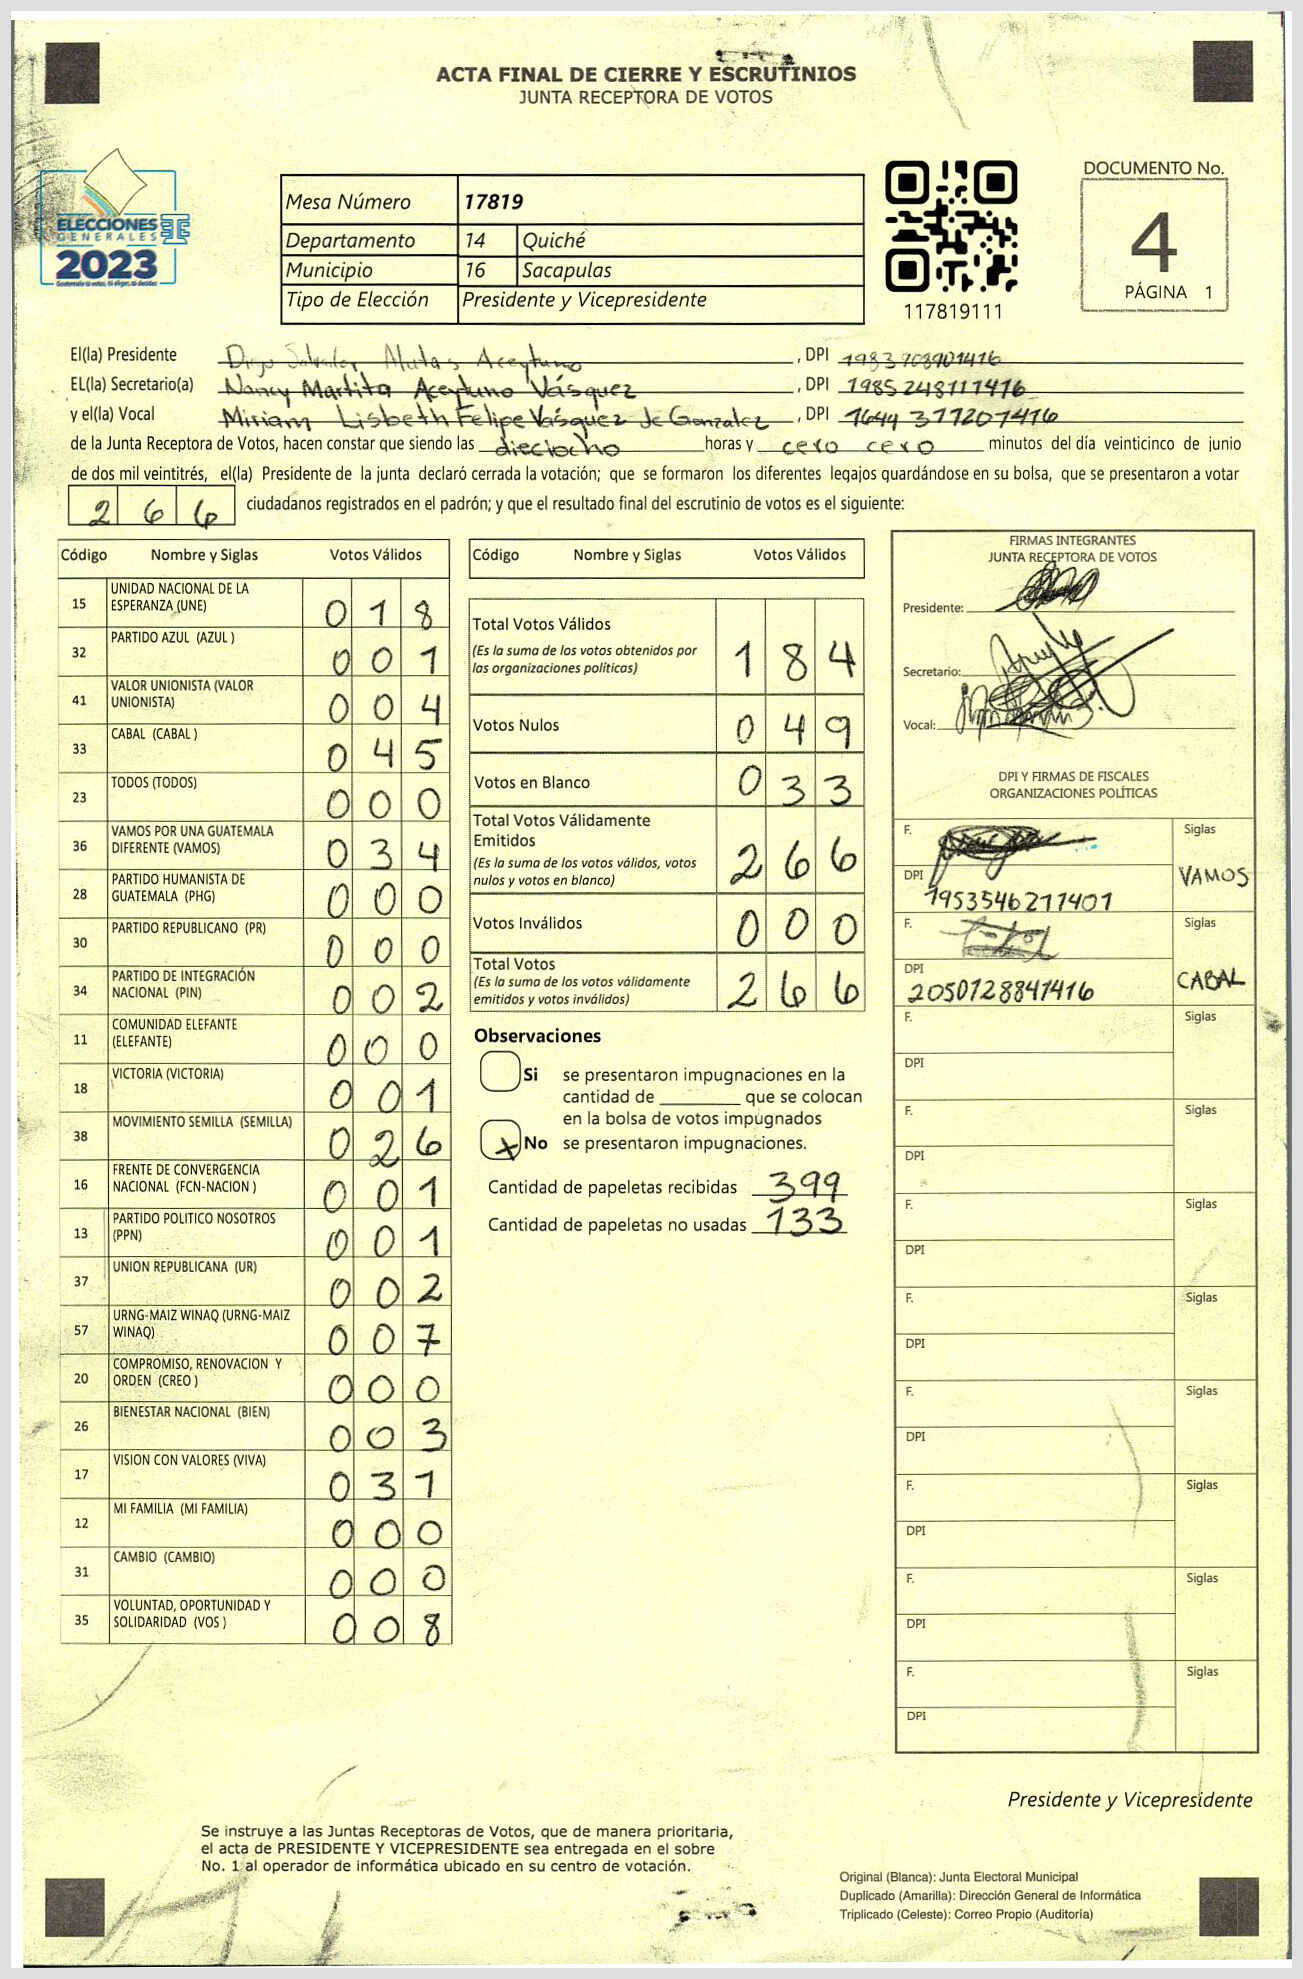 ACTA FINAL DE CIERRE Y ESCRUTINIOS
JUNTA RECEPTORA DE VOTOS
ELECCIONES
GENERALES
2023
Mesa Número 17819
Departamento 14 Quiché
Municipio 16 Sacapulas
Tipo de Elección Presidente y Vicepresidente
117819111
DOCUMENTO No.
4
PÁGINA 1
El(la) Presidente Diego Salvador Matas Aceytuno, DPI 1983903901416
EL(la) Secretario(a) Nancy Martita Aceytuno Vásquez, DPI 1985248111416
y el(la) Vocal Miriam Lisbeth Felipe Vásquez de Gonzalez, DPI 1644377207416
de la Junta Receptora de Votos, hacen constar que siendo las dieciocho horas y cero cero minutos del día veinticinco de junio
de dos mil veintitrés, el(la) Presidente de la junta declaró cerrada la votación; que se formaron los diferentes legajos guardándose en su bolsa, que se presentaron a votar
266 ciudadanos registrados en el padrón; y que el resultado final del escrutinio de votos es el siguiente:
Código Nombre y Siglas Votos Válidos
15 UNIDAD NACIONAL DE LA ESPERANZA (UNE) 018
32 PARTIDO AZUL (AZUL ) 001
41 VALOR UNIONISTA (VALOR UNIONISTA) 004
33 CABAL (CABAL ) 045
23 TODOS (TODOS) 000
36 VAMOS POR UNA GUATEMALA DIFERENTE (VAMOS) 034
28 PARTIDO HUMANISTA DE GUATEMALA (PHG) 000
30 PARTIDO REPUBLICANO (PR) 000
34 PARTIDO DE INTEGRACIÓN NACIONAL (PIN) 002
11 COMUNIDAD ELEFANTE (ELEFANTE) 000
18 VICTORIA (VICTORIA) 001
38 MOVIMIENTO SEMILLA (SEMILLA) 026
16 FRENTE DE CONVERGENCIA NACIONAL (FCN-NACION ) 001
13 PARTIDO POLITICO NOSOTROS (PPN) 001
37 UNION REPUBLICANA (UR) 002
57 URNG-MAIZ WINAQ (URNG-MAIZ WINAQ) 007
20 COMPROMISO, RENOVACION Y ORDEN (CREO ) 000
26 BIENESTAR NACIONAL (BIEN) 003
17 VISION CON VALORES (VIVA) 031
12 MI FAMILIA (MI FAMILIA) 000
31 CAMBIO (CAMBIO) 000
35 VOLUNTAD, OPORTUNIDAD Y SOLIDARIDAD (VOS ) 008
Código Nombre y Siglas Votos Válidos
Total Votos Válidos 184
(Es la suma de los votos obtenidos por
las organizaciones políticas)
Votos Nulos 049
Votos en Blanco 033
Total Votos Válidamente
Emitidos 266
(Es la suma de los votos válidos, votos
nulos y votos en blanco)
Votos Inválidos 000
Total Votos 266
(Es la suma de los votos válidamente
emitidos y votos inválidos)
Observaciones
Si se presentaron impugnaciones en la
cantidad de ________ que se colocan
en la bolsa de votos impugnados
X No se presentaron impugnaciones.
Cantidad de papeletas recibidas 399
Cantidad de papeletas no usadas 133
FIRMAS INTEGRANTES
JUNTA RECEPTORA DE VOTOS
Presidente:
Secretario:
Vocal:
DPI Y FIRMAS DE FISCALES
ORGANIZACIONES POLÍTICAS
F. Siglas
DPI 1953546211401 VAMOS
F. Siglas
DPI 2050128841416 CABAL
F. Siglas
DPI
F. Siglas
DPI
F. Siglas
DPI
F. Siglas
DPI
F. Siglas
DPI
F. Siglas
DPI
F. Siglas
DPI
F. Siglas
DPI
Presidente y Vicepresidente
Se instruye a las Juntas Receptoras de Votos, que de manera prioritaria,
el acta de PRESIDENTE Y VICEPRESIDENTE sea entregada en el sobre
No. 1 al operador de informática ubicado en su centro de votación.
Original (Blanca): Junta Electoral Municipal
Duplicado (Amarilla): Dirección General de Informática
Triplicado (Celeste): Correo Propio (Auditoría)